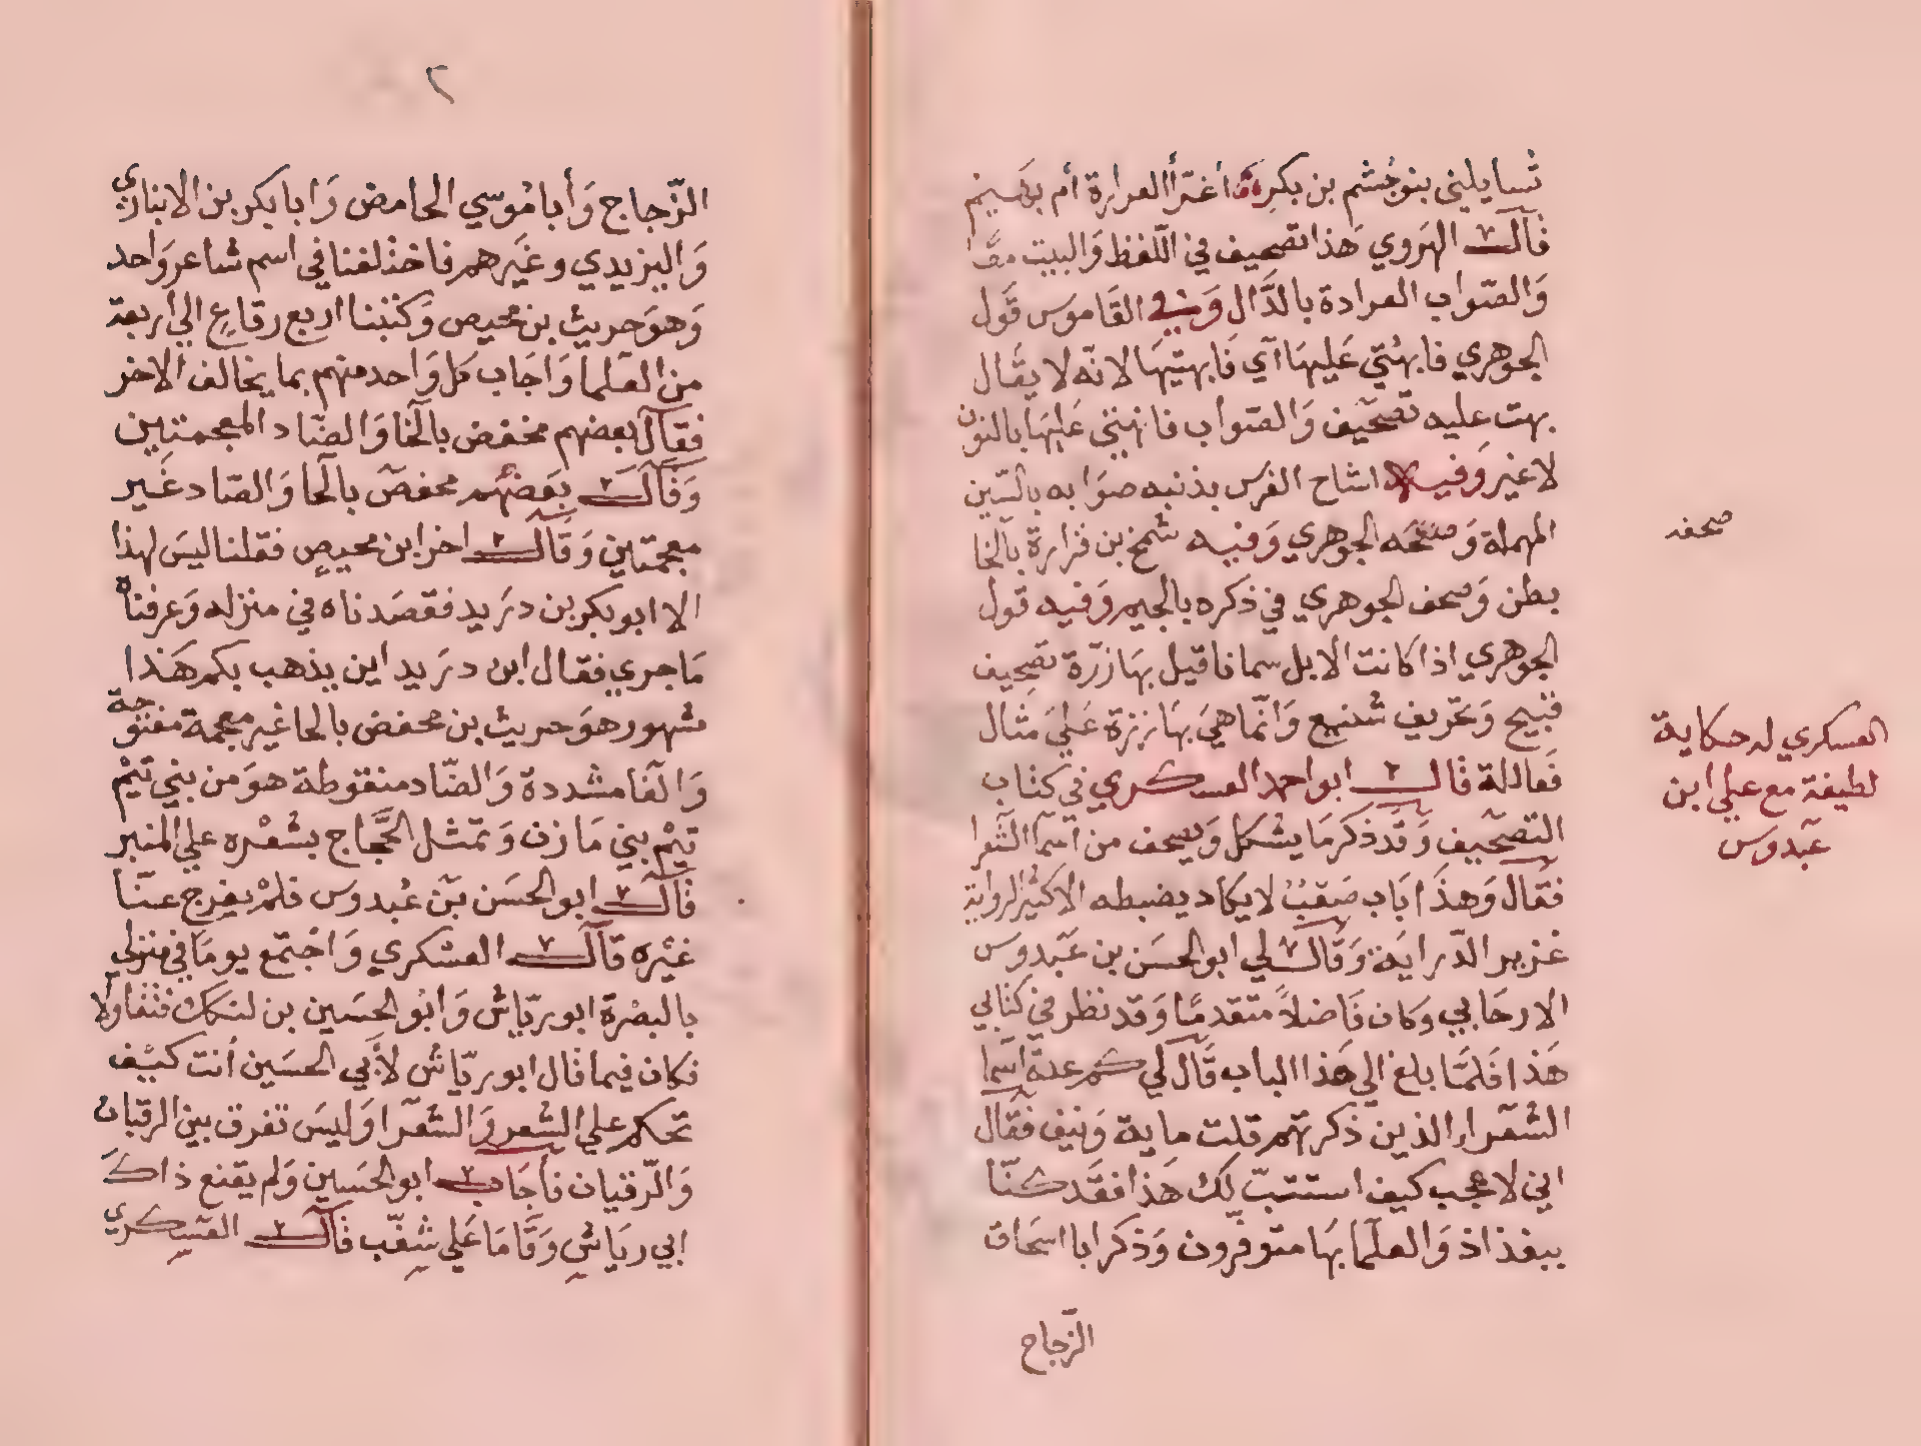 تسايلني بنو جُشم بن بكر أغرّاً العرارة أم بهيم
قال الهَروي هَذا تصحيف في اللّفظ وَالبيت معًا
وَالصّواب العرادة بالدَّال وَفي القَاموس قَول
الجوهري فابهُتي عَليهَا آي فَابهتيهَا لانّه لا يقَال
بهت عليه تصحَيف وَالصّواب فانهتي عَليهَا بالنون
لاغير وَفيه اشاح الفرَس بذنبه صوَابه بالسّين
المهملة وَصحفه الجوهري وَفيه شمخ بن فزارة بالخا
بطن وَصحف الجوهري في ذكره بالجيم وَفيه قول
الجوهري اذا كانت الابل سمانا قيل بهَازرّة تصحيف
قبيح وَتحريف شنيع وَانّما هيَ بهَازرة عَليَ مثال
فَعاللة قال ابو احمد العسكري في كتاب
التصحَيف وَقد ذكر مَا يشكل وَيصحف من اسمآ الشّعرا
فقال وَهذَا بَاب صَعْبٌ لا يكاد يضبطه الا كثير الرواية
غزير الدّرايَة وَقال لي ابو الحسَن بن عَبدوس
الارجَاني وَكان فَاضلاً متقدمًا وَقد نظر في كتابي
هَذا فَلمَّا بلغ الي هَذا الباب قَال لي كم عدة اسَما
الشّعرَاء الذين ذكرتهم قلت ماية وَنيف فقَال
اني لاعجب كيف استتبّ لك هَذا فقَد كنّا
ببغذاذ وَالعلَما بهَا متوفّرون وَذكر ابا اسحَاق
الزّجاج
صحفه
العسكري له حكاية
لطيفة مع علي ابن
عبدوس
٢
الزّجاج وَأبا مُوسي الحامض وَابا بكر بن الانباري
وَاليزيدي وغَيرهم فاختلفنا في اسم شاعر وَاحد
وَهوَ حريث بن محيص وَكتبنا اربع رقاع الي أربعة
من العَلما وَاجَاب كل وَاحد منهم بما يخالف الاخر
فقال بعضهم مخفض بالخَا وَالضّاد المعجمتين
وَقَال بعَضهم محفصَ بالحَا وَالصّاد غَير
معجمتين وَقَال اخر ابن محيصٍ فقلنا ليسَ لهذا
الا ابو بكر بن درَيد فقصَدناه في منزله وَعرفناه
مَا جري فقال ابن درَيد اين يذهب بكم هَذا
مشهور هوَ حريث بن محفض بالحا غير معجمة مفتوحة
وَالفَا مشددة وَالضّاد منقوطة هوَ من بني تَيْم
تيْم بني مَازن وَتمثل الحَّجاج بشعْره علي المنبر
قَال ابو الحسَن بَن عْبدوس فلمْ يفرج عنّا
غيْره قال العسْكري وَاجْتمع يومَا في منزلي
بالبصْرة ابو ريّاش وَابُو الحسَين بن لنكك فتقاولا
فكان فيما قال ابو ريّاش لأبَي الحسَين أنت كيَف
تحكم علي الشعر وَالشعَرا وَليسَ تفرق بين الرقبان
وَالرّفيان فأجَاب ابو الحسَين وَلم يقنع ذاك
ابي ريَاش وَقَامَا عَلي شغَب قَال العسكري